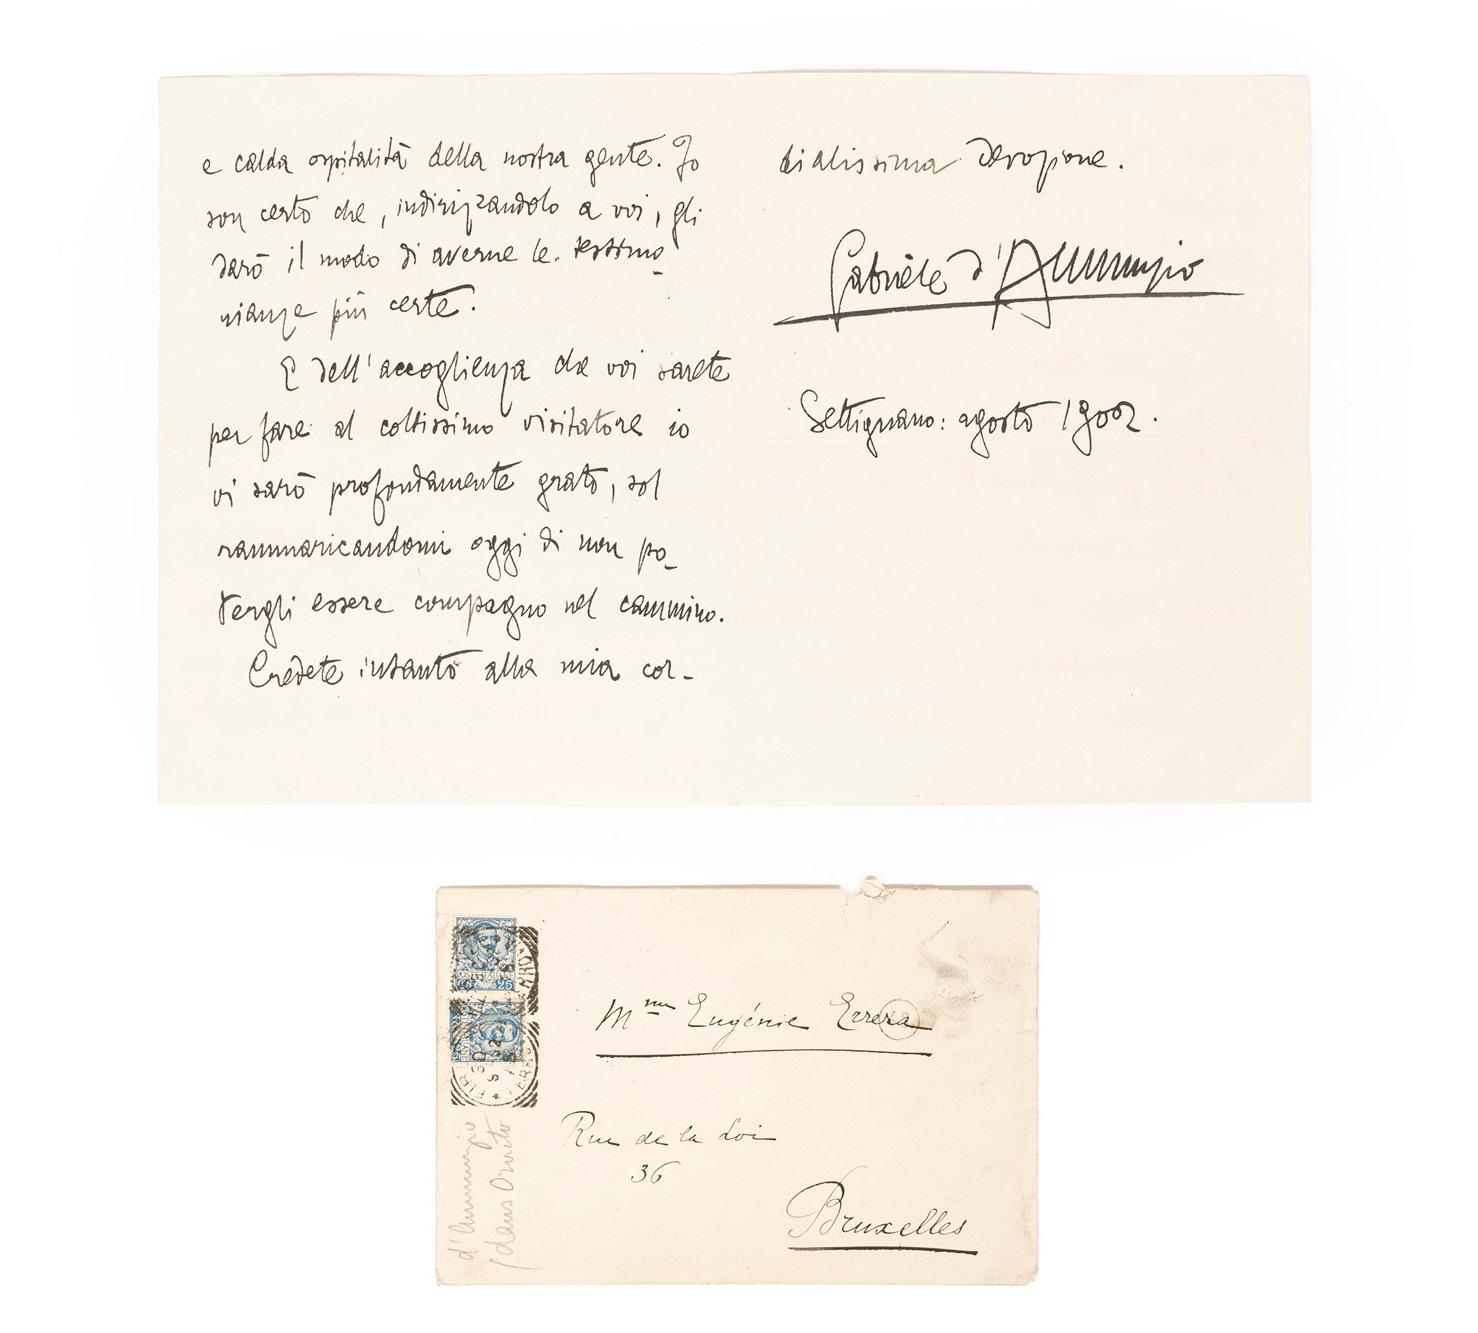 e calda ospitalità della nostra gente. Io
son certo che, indirizzandolo a voi, gli
darò il modo di averne le testimo-
nianze più certe.
E dell'accoglienza che voi sarete
per fare al coltissimo visitatore io
vi sarò profondamente grato, sol
rammaricandomi oggi di non po-
tergli essere compagno nel cammino.
Credete intanto alla mia cor-
dialissima devozione.
Gabriele d'Annunzio
Settignano: agosto 1902.
25
25
FERROVIA
FIR
30
9
FERR
Mme Eugénie Errera
Rue de la Loi
36
Bruxelles
d'Annunzio
(dans Orvieto